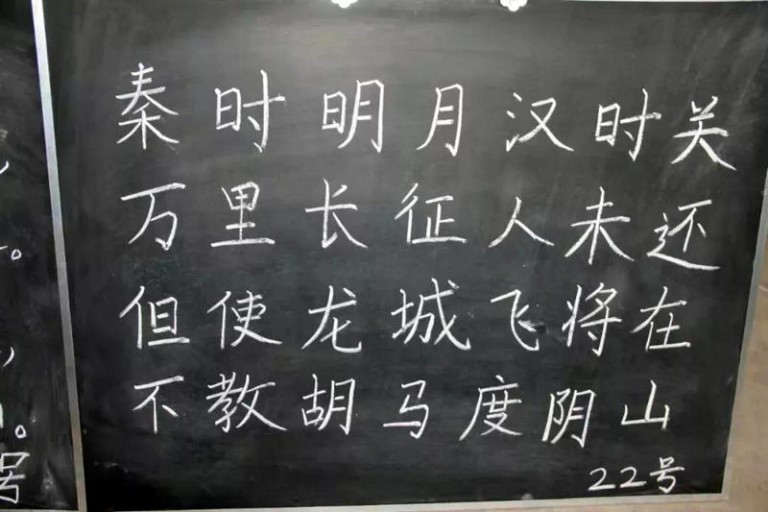 秦时明月汉时关
万里长征人未还
但使龙城飞将在
不教胡马度阴山
22号